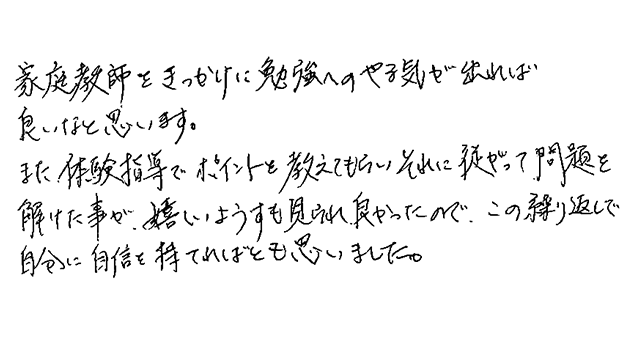 家庭教師をきっかけに勉強へのやる気が出れば
良いなと思います。
また体験指導でポイントを教えてもらいそれに従がって問題を
解けた事が、嬉しいようすも見られ良かったので、この繰り返しで
自分に自信を持てればとも思いました。